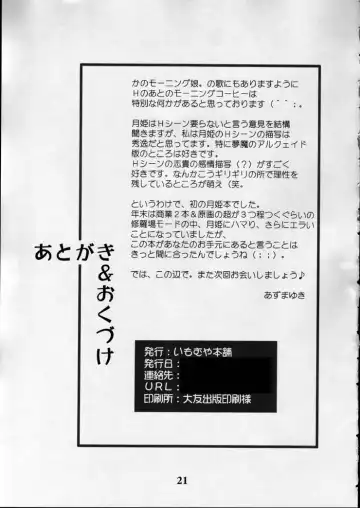 かのモーニング娘。の歌にもありますように
Ｈのあとのモーニングコーヒーは
特別な何かがあると思っております（｀｀；。
月姫はＨシーン要らないと言う意見を結構
聞きますが、私は月姫のＨシーンの描写は
秀逸だと思ってます。特に夢魔のアルクェイド
版のところは好きです。
Ｈシーンの志貴の感情描写（？）がすごく
好きです。なんかこうギリギリの所で理性を
残しているところが萌え（笑。
というわけで、初の月姫本でした。
年末は商業２本＆原画の超が３つ程つくぐらいの
修羅場モードの中、月姫にハマり、さらにエライ
ことになっていましたが、
この本があなたのお手元にあると言うことは
きっと間に合ったんでしょうね（；；）。
では、この辺で。また次回お会いしましょう♪
あずまゆき
あとがき＆おくづけ
発行：いもむや本舗
発行日：
連絡先：
ＵＲＬ：
印刷所：大友出版印刷様
21